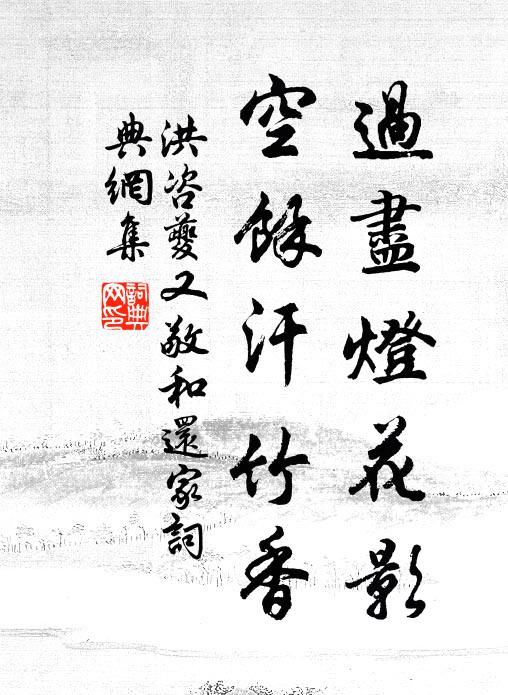 過盡燈花影
空餘汗竹香
洪咨夔又敬和還家詞
典網集
詞典網印